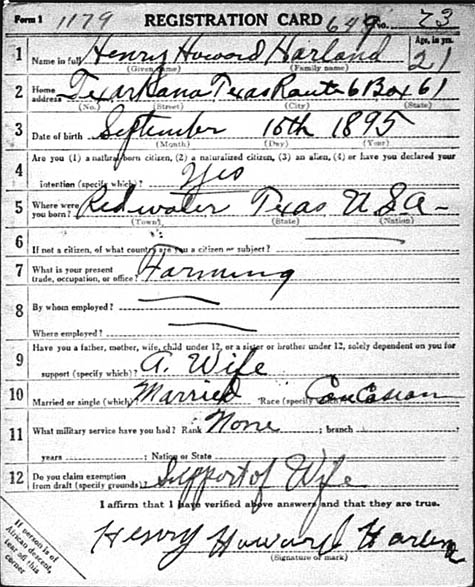 Form 1 1179 REGISTRATION CARD 649 No. 73
1 Name in full Henry Howard Harland Age, in yrs. 21
(Given name) (Family name)
2 Home address Texarkana Texas Route 6 Box 61
(No.) (Street) (City) (State)
3 Date of birth September 15th 1895
(Month) (Day) (Year)
4 Are you (1) a natural-born citizen, (2) a naturalized citizen, (3) an alien, (4) or have you declared your
intention (specify which)? Yes
5 Where were you born? Redwater Texas U.S.A.
(Town) (State) (Nation)
6 If not a citizen, of what country are you a citizen or subject?
7 What is your present trade, occupation, or office? Farming
8 By whom employed?
Where employed?
9 Have you a father, mother, wife, child under 12, or a sister or brother under 12, solely dependent on you for
support (specify which)? A. Wife
10 Married or single (which) Married Race (specify which)? Caucasian
11 What military service have you had? Rank None ; branch
years ; Nation or State
12 Do you claim exemption from draft (specify grounds)? Support of Wife
I affirm that I have verified above answers and that they are true.
Henry Howard
(Signature or mark)
If person is of
African descent,
tear off this
corner